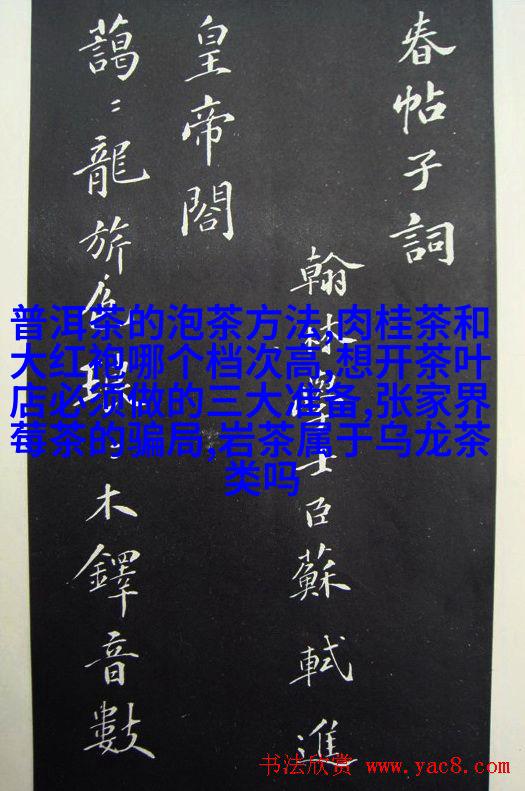 春帖子詞
翰林學士臣蘇軾進
皇帝閤
藹〻龍旂色琅〻木鐸音數
普洱茶的泡茶方法,肉桂茶和
大红袍哪个档次高,想开茶叶
店必须做的三大准备,张家界
莓茶的骗局,岩茶属于乌龙茶
类吗
书法欣赏 www.yac8.com